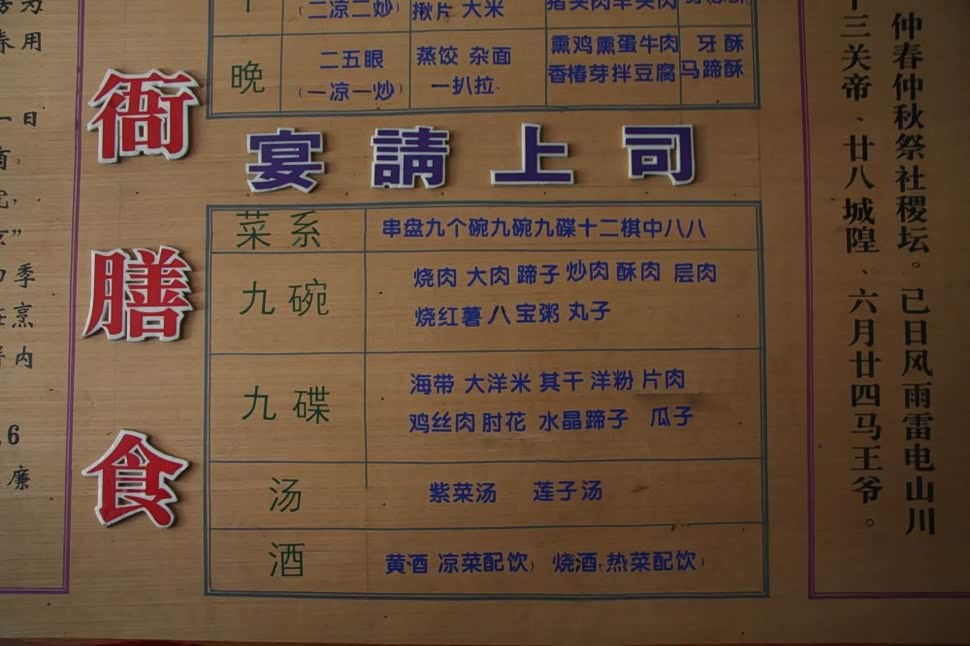 衙
膳
食
(二凉二炒)
揪片 大米
晚
二五眼
(一凉一炒)
蒸饺 杂面
一扒拉
熏鸡熏蛋牛肉
香椿芽拌豆腐
牙酥
马蹄酥
宴請上司
菜系
串盘九个碗九碗九碟十二棋中八八
九碗
烧肉 大肉 蹄子 炒肉 酥肉 层肉
烧红薯 八宝粥 丸子
九碟
海带 大洋米 其干 洋粉 片肉
鸡丝肉 肘花 水晶蹄子 瓜子
汤
紫菜汤 莲子汤
酒
黄酒 凉菜配饮) 烧酒(热菜配饮)
仲春仲秋祭社稷坛。己日风雨雷电山川
十三关帝、廿八城隍、六月廿四马王爷。
为
春用
一日
季
烹
内
6
廉